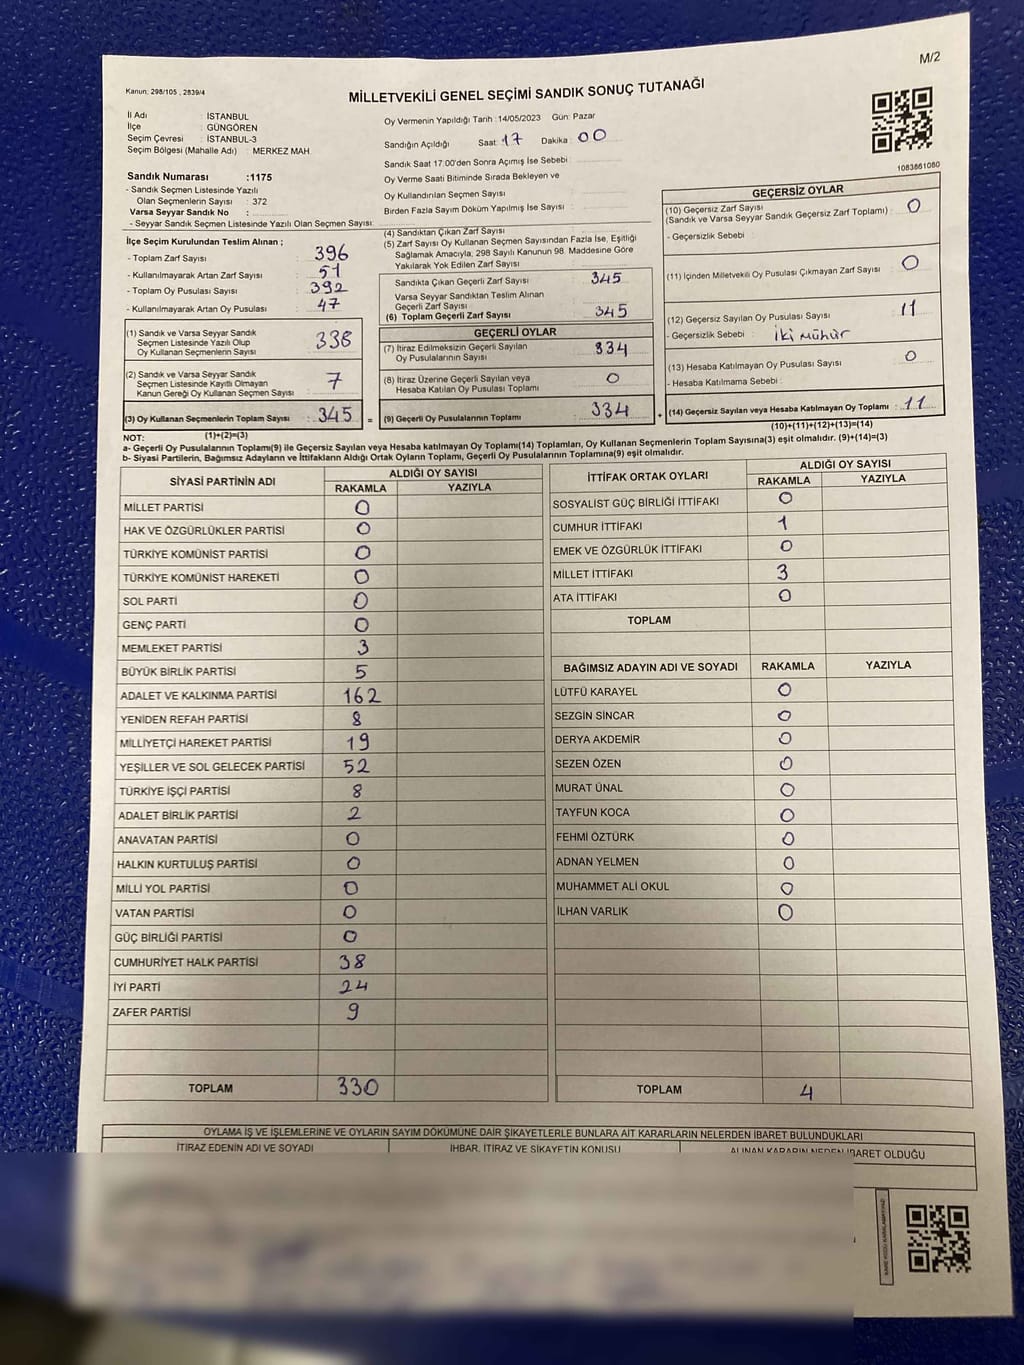 M/2
Kanun; 298/105 , 2839/4
MİLLETVEKİLİ GENEL SEÇİMİ SANDIK SONUÇ TUTANAĞI
İl Adı : İSTANBUL
İlçe : GÜNGÖREN
Seçim Çevresi : İSTANBUL-3
Seçim Bölgesi (Mahalle Adı) : MERKEZ MAH.
Sandık Numarası :1175
- Sandık Seçmen Listesinde Yazılı
Olan Seçmenlerin Sayısı : 372
Varsa Seyyar Sandık No :
- Seyyar Sandık Seçmen Listesinde Yazılı Olan Seçmen Sayısı:
Oy Vermenin Yapıldığı Tarih :14/05/2023 Gün: Pazar
Sandığın Açıldığı Saat: 17 Dakika: 00
Sandık Saat 17:00'den Sonra Açımış İse Sebebi :
Oy Verme Saati Bitiminde Sırada Bekleyen ve
Oy Kullandırılan Seçmen Sayısı
Birden Fazla Sayım Döküm Yapılmış İse Sayısı :
1083861080
İlçe Seçim Kurulundan Teslim Alınan ;
- Toplam Zarf Sayısı : 396
- Kullanılmayarak Artan Zarf Sayısı : 51
- Toplam Oy Pusulası Sayısı : 392
- Kullanılmayarak Artan Oy Pusulası : 47
(1) Sandık ve Varsa Seyyar Sandık
Seçmen Listesinde Yazılı Olup
Oy Kullanan Seçmenlerin Sayısı : 338
(2) Sandık ve Varsa Seyyar Sandık
Seçmen Listesinde Kayıtlı Olmayan
Kanun Gereği Oy Kullanan Seçmen Sayısı : 7
(3) Oy Kullanan Seçmenlerin Toplam Sayısı : 345
(1)+(2)=(3)
(4) Sandıktan Çıkan Zarf Sayısı :
(5) Zarf Sayısı Oy Kullanan Seçmen Sayısından Fazla İse, Eşitliği
Sağlamak Amacıyla; 298 Sayılı Kanunun 98. Maddesine Göre
Yakılarak Yok Edilen Zarf Sayısı :
Sandıkta Çıkan Geçerli Zarf Sayısı : 345
Varsa Seyyar Sandıktan Teslim Alınan
Geçerli Zarf Sayısı :
(6) Toplam Geçerli Zarf Sayısı : 345
GEÇERLİ OYLAR
(7) İtiraz Edilmeksizin Geçerli Sayılan
Oy Pusulalarının Sayısı : 334
(8) İtiraz Üzerine Geçerli Sayılan veya
Hesaba Katılan Oy Pusulası Toplamı : 0
= (9) Geçerli Oy Pusulalarının Toplamı : 334
GEÇERSİZ OYLAR
(10) Geçersiz Zarf Sayısı
(Sandık ve Varsa Seyyar Sandık Geçersiz Zarf Toplamı) : 0
- Geçersizlik Sebebi :
(11) İçinden Milletvekili Oy Pusulası Çıkmayan Zarf Sayısı : 0
(12) Geçersiz Sayılan Oy Pusulası Sayısı : 11
- Geçersizlik Sebebi : İki Mühür
(13) Hesaba Katılmayan Oy Pusulası Sayısı : 0
- Hesaba Katılmama Sebebi :
+ (14) Geçersiz Sayılan veya Hesaba Katılmayan Oy Toplamı : 11
(10)+(11)+(12)+(13)=(14)
NOT:
a- Geçerli Oy Pusulalarının Toplamı(9) ile Geçersiz Sayılan veya Hesaba katılmayan Oy Toplamı(14) Toplamları, Oy Kullanan Seçmenlerin Toplam Sayısına(3) eşit olmalıdır. (9)+(14)=(3)
b- Siyasi Partilerin, Bağımsız Adayların ve İttifakların Aldığı Ortak Oyların Toplamı, Geçerli Oy Pusulalarının Toplamına(9) eşit olmalıdır.
SİYASİ PARTİNİN ADI ALDIĞI OY SAYISI
RAKAMLA YAZIYLA
MİLLET PARTİSİ 0
HAK VE ÖZGÜRLÜKLER PARTİSİ 0
TÜRKİYE KOMÜNİST PARTİSİ 0
TÜRKİYE KOMÜNİST HAREKETİ 0
SOL PARTİ 0
GENÇ PARTİ 0
MEMLEKET PARTİSİ 3
BÜYÜK BİRLİK PARTİSİ 5
ADALET VE KALKINMA PARTİSİ 162
YENİDEN REFAH PARTİSİ 8
MİLLİYETÇİ HAREKET PARTİSİ 19
YEŞİLLER VE SOL GELECEK PARTİSİ 52
TÜRKİYE İŞÇİ PARTİSİ 8
ADALET BİRLİK PARTİSİ 2
ANAVATAN PARTİSİ 0
HALKIN KURTULUŞ PARTİSİ 0
MİLLİ YOL PARTİSİ 0
VATAN PARTİSİ 0
GÜÇ BİRLİĞİ PARTİSİ 0
CUMHURİYET HALK PARTİSİ 38
İYİ PARTİ 24
ZAFER PARTİSİ 9
TOPLAM 330
İTTİFAK ORTAK OYLARI ALDIĞI OY SAYISI
RAKAMLA YAZIYLA
SOSYALİST GÜÇ BİRLİĞİ İTTİFAKI 0
CUMHUR İTTİFAKI 1
EMEK VE ÖZGÜRLÜK İTTİFAKI 0
MİLLET İTTİFAKI 3
ATA İTTİFAKI 0
TOPLAM
BAĞIMSIZ ADAYIN ADI VE SOYADI RAKAMLA YAZIYLA
LÜTFÜ KARAYEL 0
SEZGİN SİNCAR 0
DERYA AKDEMİR 0
SEZEN ÖZEN 0
MURAT ÜNAL 0
TAYFUN KOCA 0
FEHMİ ÖZTÜRK 0
ADNAN YELMEN 0
MUHAMMET ALİ OKUL 0
İLHAN VARLIK 0
TOPLAM 4
OYLAMA İŞ VE İŞLEMLERİNE VE OYLARIN SAYIM DÖKÜMÜNE DAİR ŞİKAYETLERLE BUNLARA AİT KARARLARIN NELERDEN İBARET BULUNDUKLARI
İTİRAZ EDENİN ADI VE SOYADI İHBAR, İTİRAZ VE ŞİKAYETİN KONUSU ALINAN KARARIN NEDEN İBARET OLDUĞU